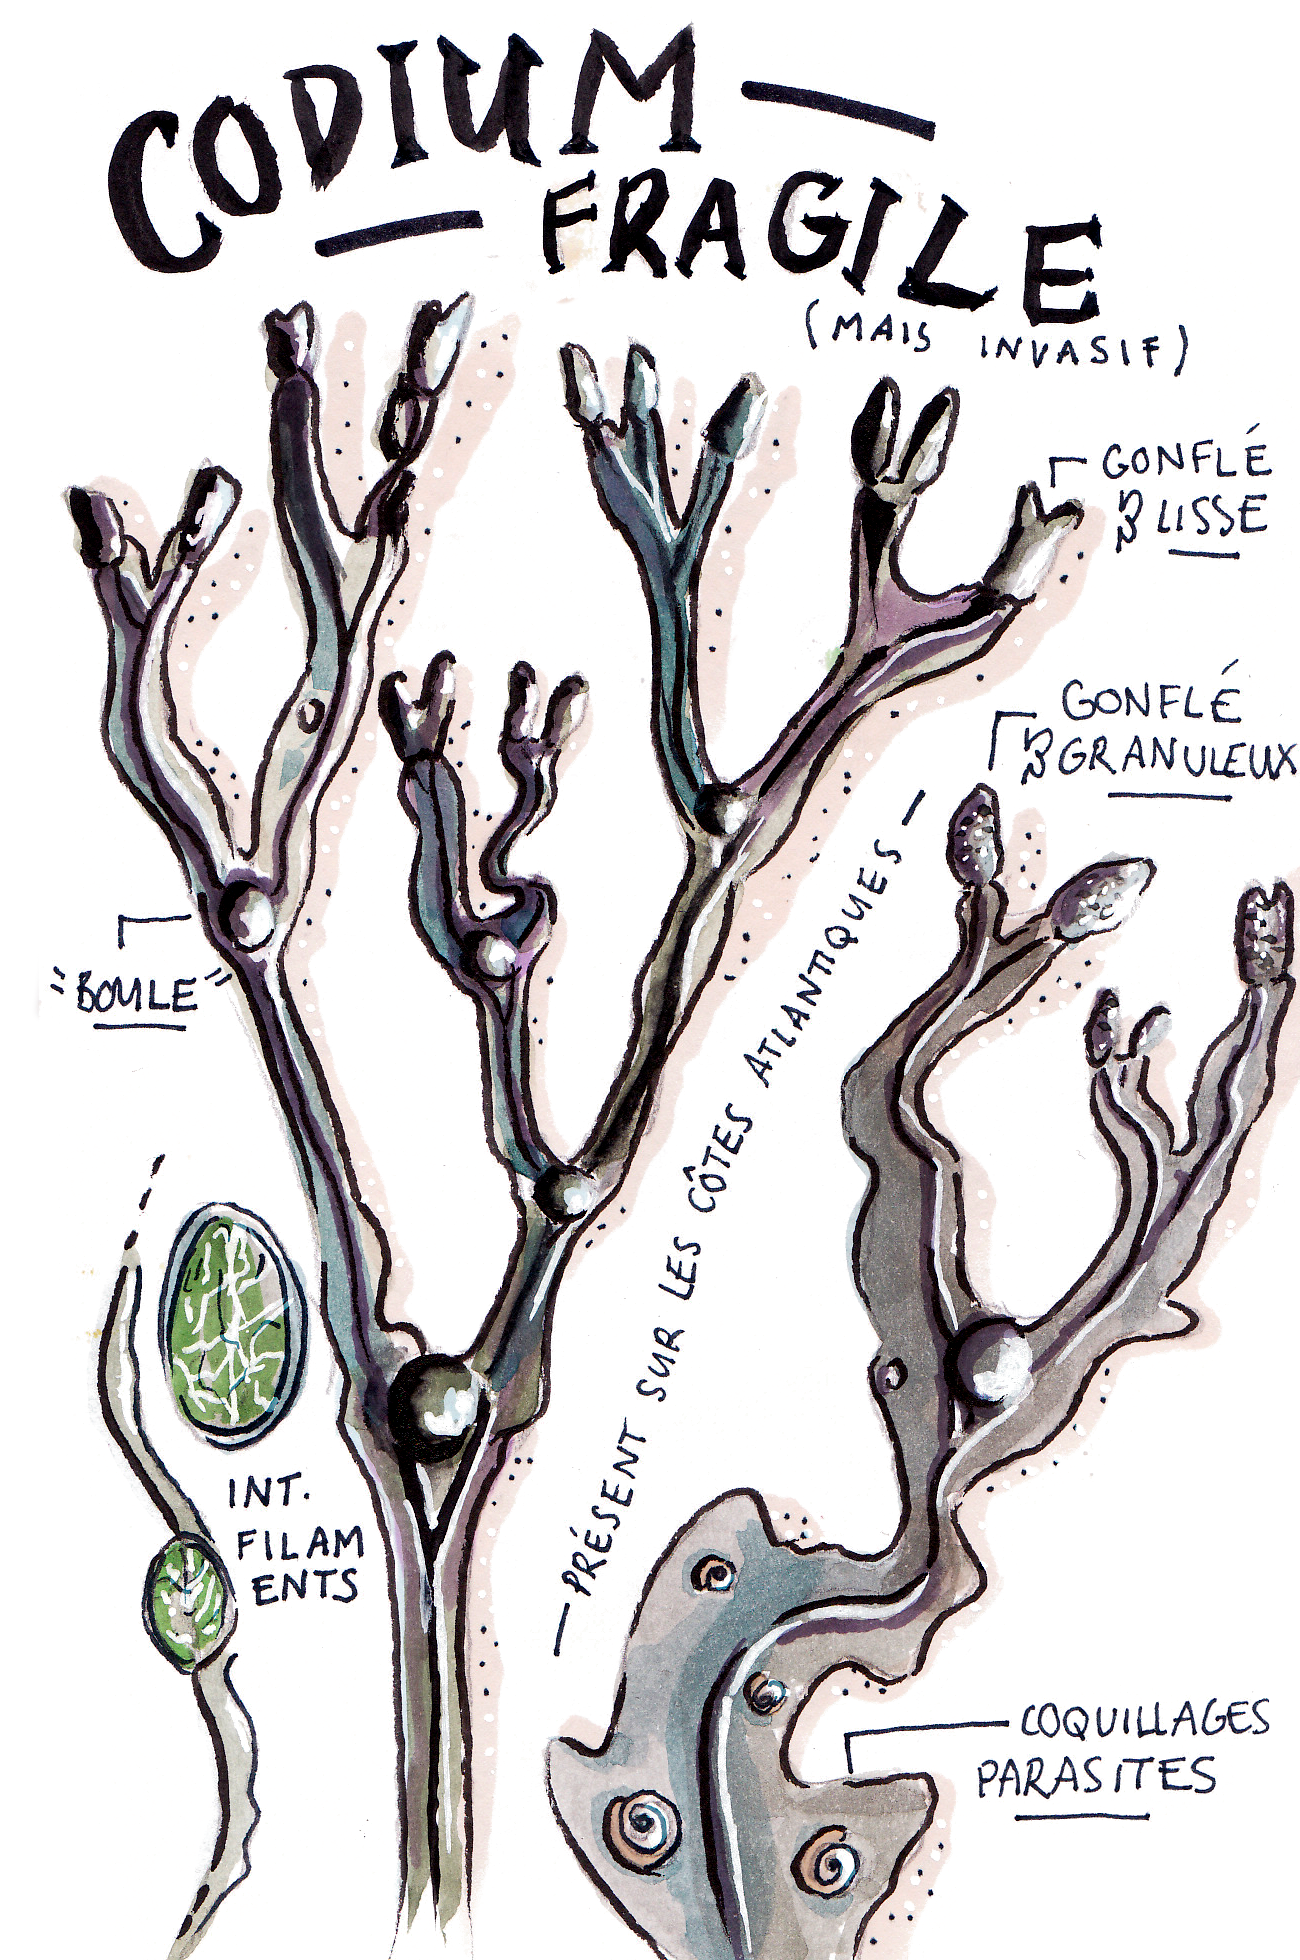 CODIUM
FRAGILE
(MAIS INVASIF)
GONFLÉ
& LISSE
GONFLÉ
& GRANULEUX
"BOULE"
PRÉSENT SUR LES CÔTES ATLANTIQUES
INT.
FILAM
ENTS
COQUILLAGES
PARASITES